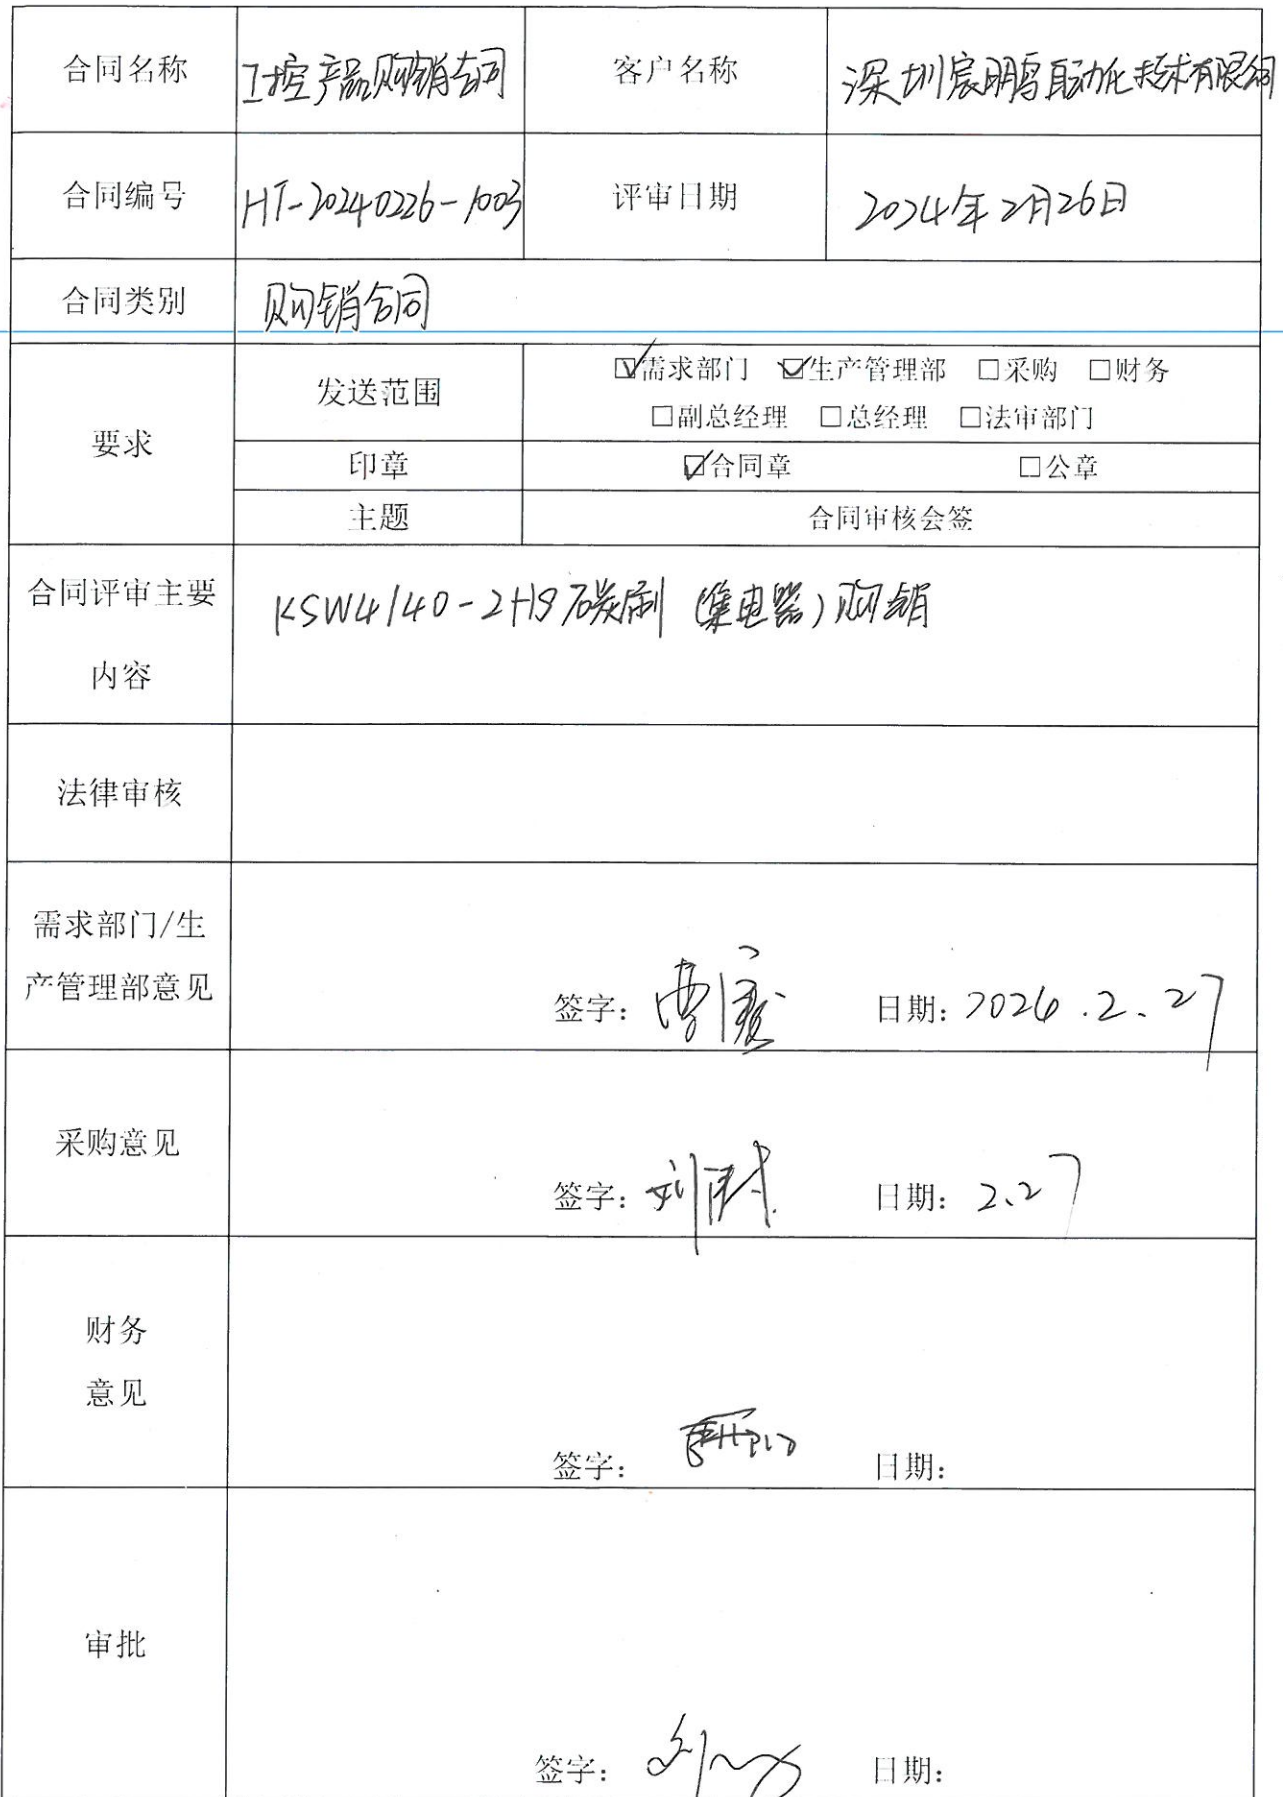 合同名称 工控产品购销合同 客户名称 深圳宸鹏自动化技术有限公司
合同编号 HT-20240226-1003 评审日期 2024年2月26日
合同类别 购销合同
要求 发送范围 ☑需求部门 ☑生产管理部 □采购 □财务
□副总经理 □总经理 □法审部门
印章 ☑合同章 □公章
主题 合同审核会签
合同评审主要
内容
KSW4140-2H9碳刷(集电器)购销
法律审核
需求部门/生
产管理部意见
签字: 日期: 2024.2.27
采购意见
签字: 日期: 2.27
财务
意见
签字: 日期:
审批
签字: 日期: